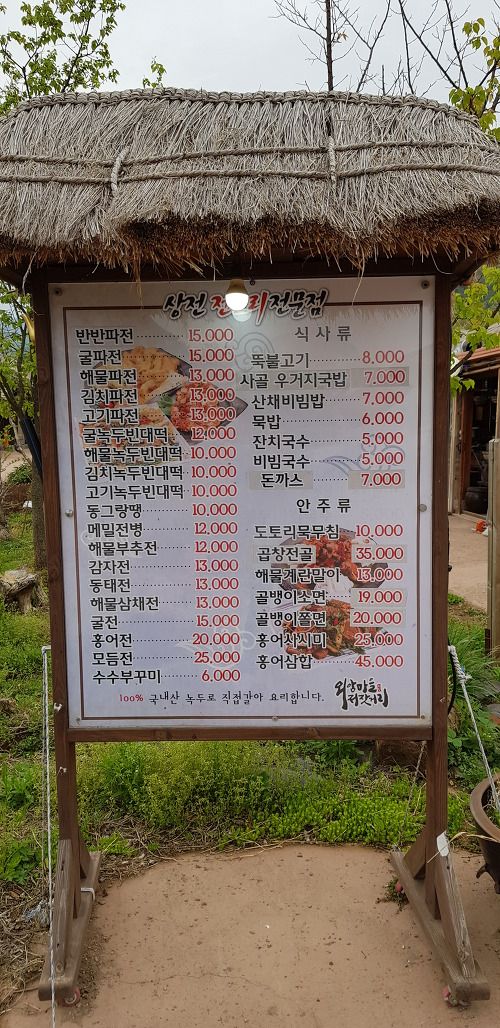 상전 전요리전문점
반반파전 15,000
굴파전 15,000
해물파전 13,000
김치파전 13,000
고기파전 13,000
굴녹두빈대떡 12,000
해물녹두빈대떡 10,000
김치녹두빈대떡 10,000
고기녹두빈대떡 10,000
동그랑땡 10,000
메밀전병 12,000
해물부추전 12,000
감자전 13,000
동태전 13,000
해물삼채전 13,000
굴전 15,000
홍어전 20,000
모듬전 25,000
수수부꾸미 6,000
식사류
뚝불고기 8,000
사골 우거지국밥 7,000
산채비빔밥 7,000
묵밥 6,000
잔치국수 5,000
비빔국수 5,000
돈까스 7,000
안주류
도토리묵무침 10,000
곱창전골 35,000
해물계란말이 13,000
골뱅이소면 19,000
골뱅이쫄면 20,000
홍어사시미 25,000
홍어삼합 45,000
100% 국내산 녹두로 직접갈아 요리합니다.
외암마을
저잣거리